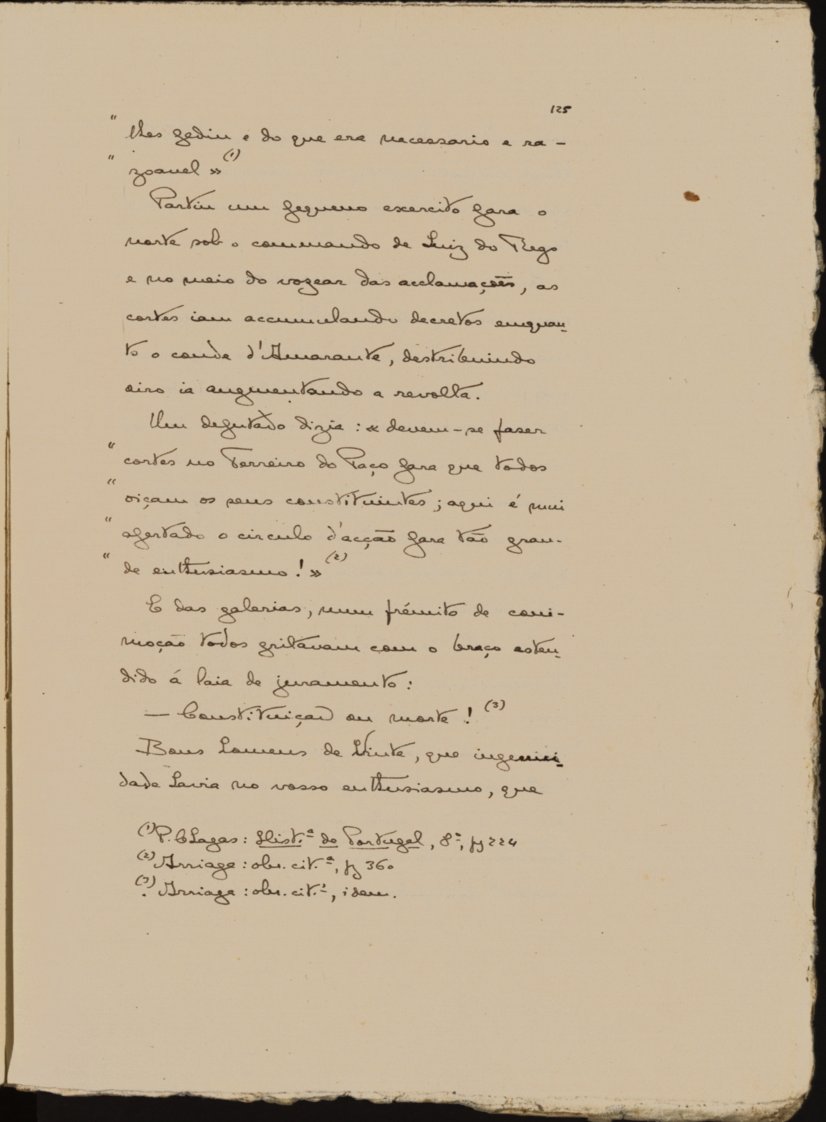 125
" lhes pediu e do que era necessario e ra-
" zoavel » (1)
Partiu um pequeno exercito para o
norte sob o commando de Luiz do Rego
e no meio do vozear das acclamações, as
cortes iam accumulando decretos emquan-
to o conde d'Amarante, destribuindo
oiro ia augmentando a revolta.
Um deputado dizia : « devem-se faser
" cortes no Terreiro do Paço para que todos
" oiçam os seus constituintes ; aqui é mui
" apertado o circulo d'acção para tão gran-
" de enthusiasmo ! » (2)
E das galerias, num frémito de com-
moção todos gritavam com o braço esten-
dido á laia de juramento :
— Constituição ou morte ! (3)
Bons homens de Vinte, que ingenui-
dade havia no vosso enthusiasmo, que
(1) P. Chagas : Hist.ª de Portugal, 8º, pg 224
(2) Arriaga : obr. cit.ª, pg 360
(3) Arriaga : obr. cit.ª, idem.